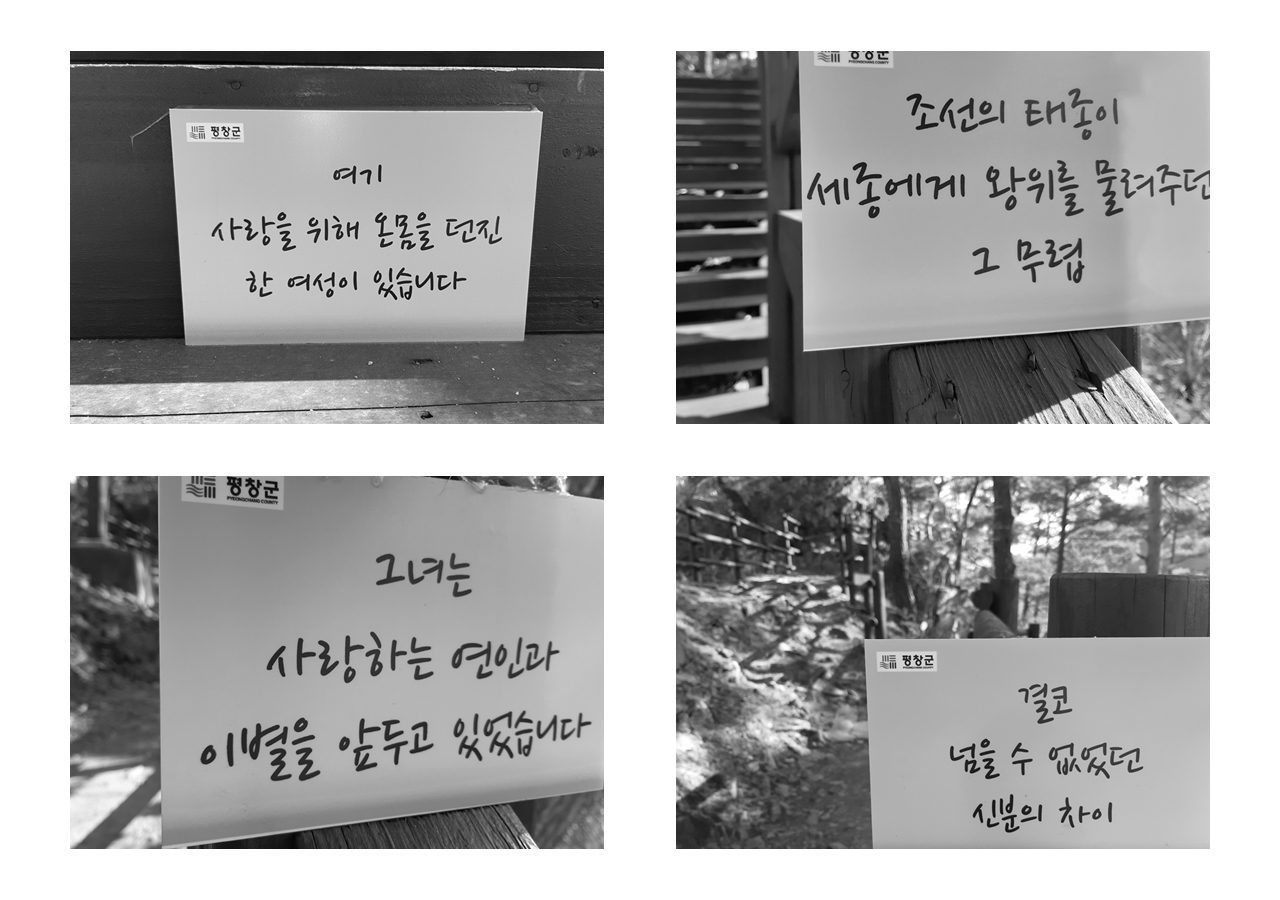 평창군
여기
사랑을 위해 온몸을 던진
한 여성이 있습니다
평창군
PYEONGCHANG COUNTY
조선의 태종이
세종에게 왕위를 물려주던
그 무렵
평창군
PYEONGCHANG COUNTY
그녀는
사랑하는 연인과
이별을 앞두고 있었습니다
평창군
결코
넘을 수 없었던
신분의 차이